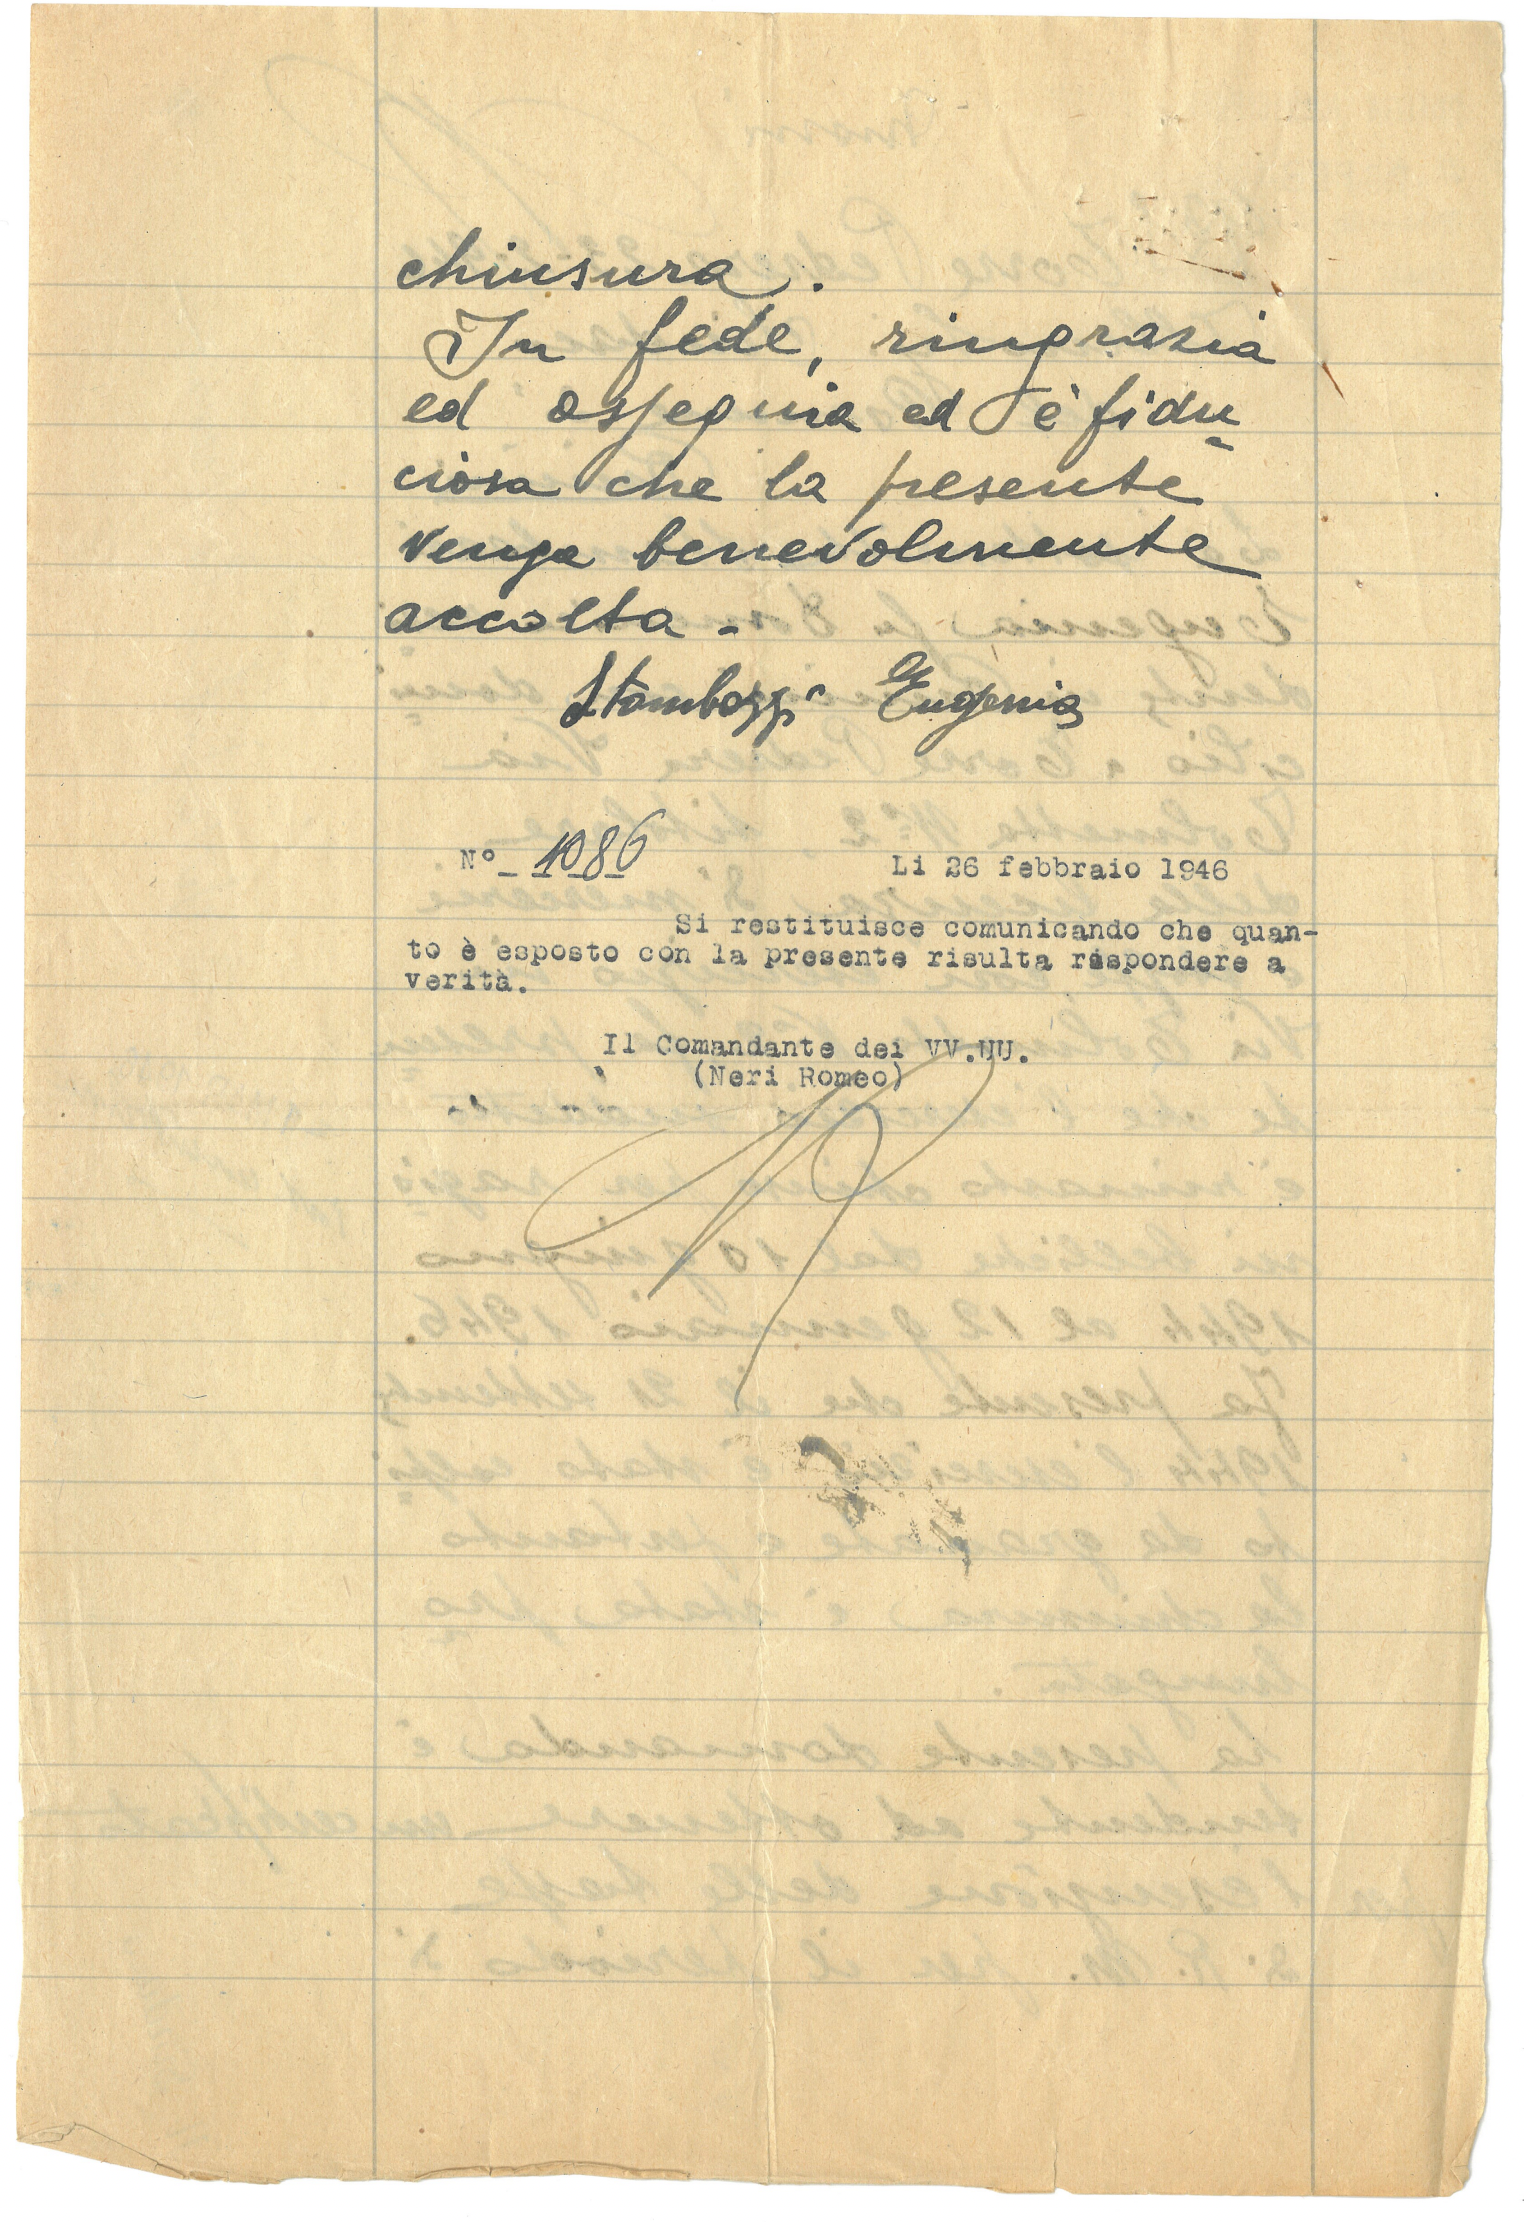 chiusura.
In fede, ringrazia
ed ossequia ed è fidu
ciosa che la presente
venga benevolmente
accolta -
Stambazzi Eugenia
N° _ 1086
Li 26 febbraio 1946
Si restituisce comunicando che quan-
to è esposto con la presente risulta rispondere a
verità.
Il Comandante dei VV.UU.
(Neri Romeo)